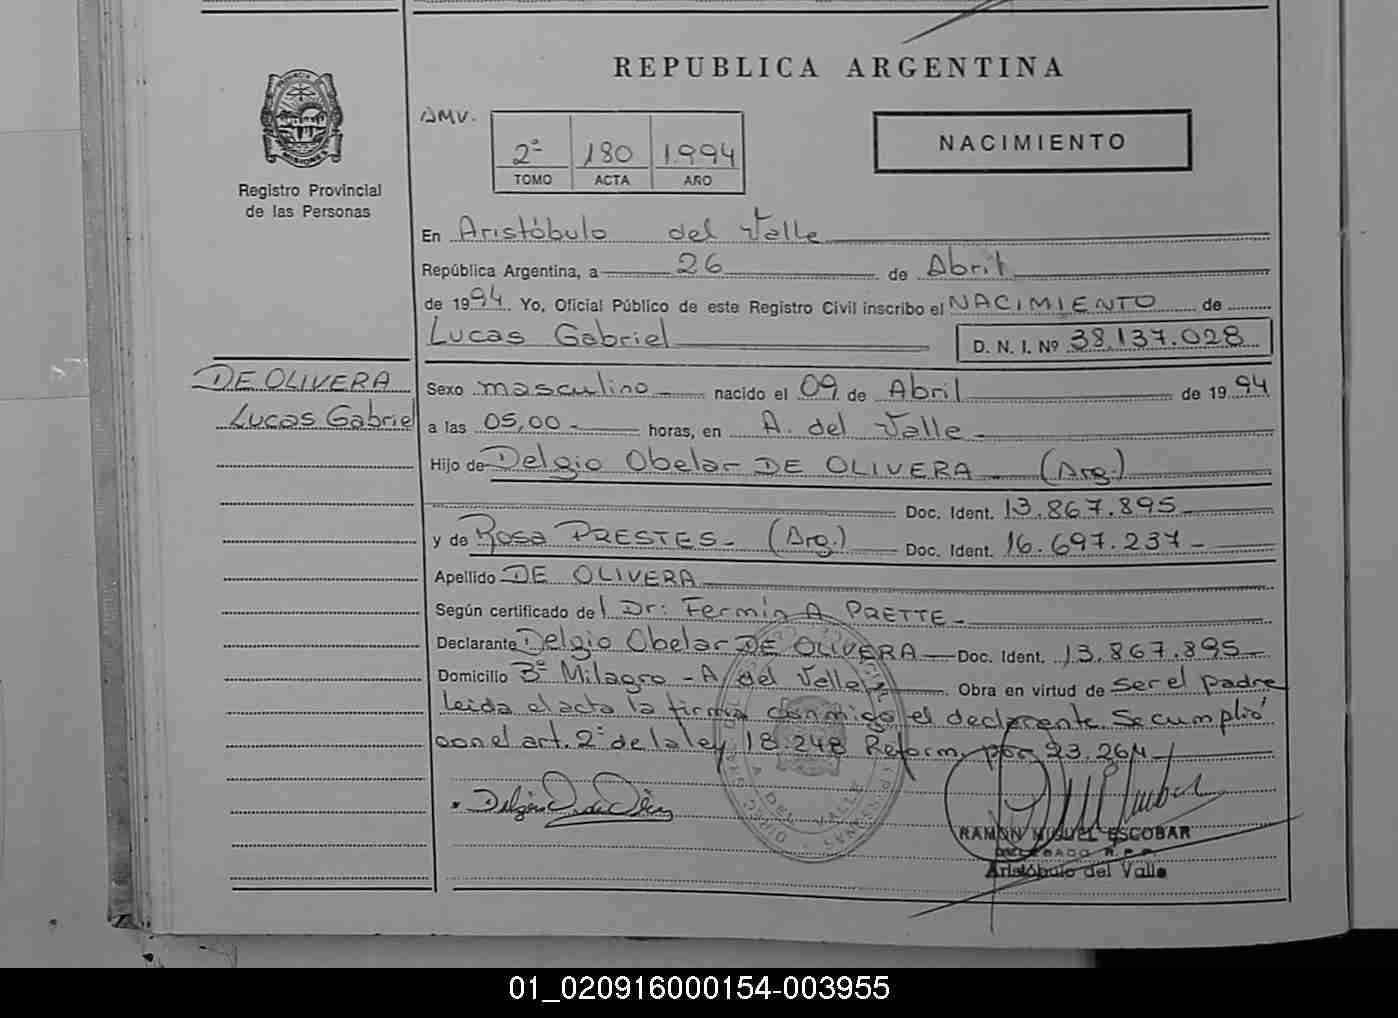 REPUBLICA ARGENTINA
PROVINCIA
MISIONES
Registro Provincial
de las Personas
AMV.
2ª 180 1.994
TOMO ACTA AÑO
NACIMIENTO
En Aristóbulo del Valle
República Argentina, a 26 de Abril
de 1994. Yo, Oficial Público de este Registro Civil inscribo el NACIMIENTO de
Lucas Gabriel D. N. I. Nº 38.137.028
DE OLIVERA
Lucas Gabriel
Sexo masculino nacido el 09 de Abril de 1994
a las 05,00 horas, en A. del Valle
Hijo de Delgio Obelar DE OLIVERA (Arg.)
Doc. Ident. 13.867.895
y de Rosa PRESTES (Arg.) Doc. Ident. 16.697.237
Apellido DE OLIVERA
Según certificado del Dr: Fermín A PRETTE
Declarante Delgio Obelar DE OLIVERA Doc. Ident. 13.867.895
Domicilio Bº Milagro - A del Valle. Obra en virtud de ser el padre
leida el acta la firma conmigo el declarante. Se cumplió
con el art. 2º de la ley 18.248 Reform. por 23.264
A. DEL VALLE
RAMON MIGUEL ESCOBAR
DELEGADO R.P.P.
Aristóbulo del Valle
01_020916000154-003955